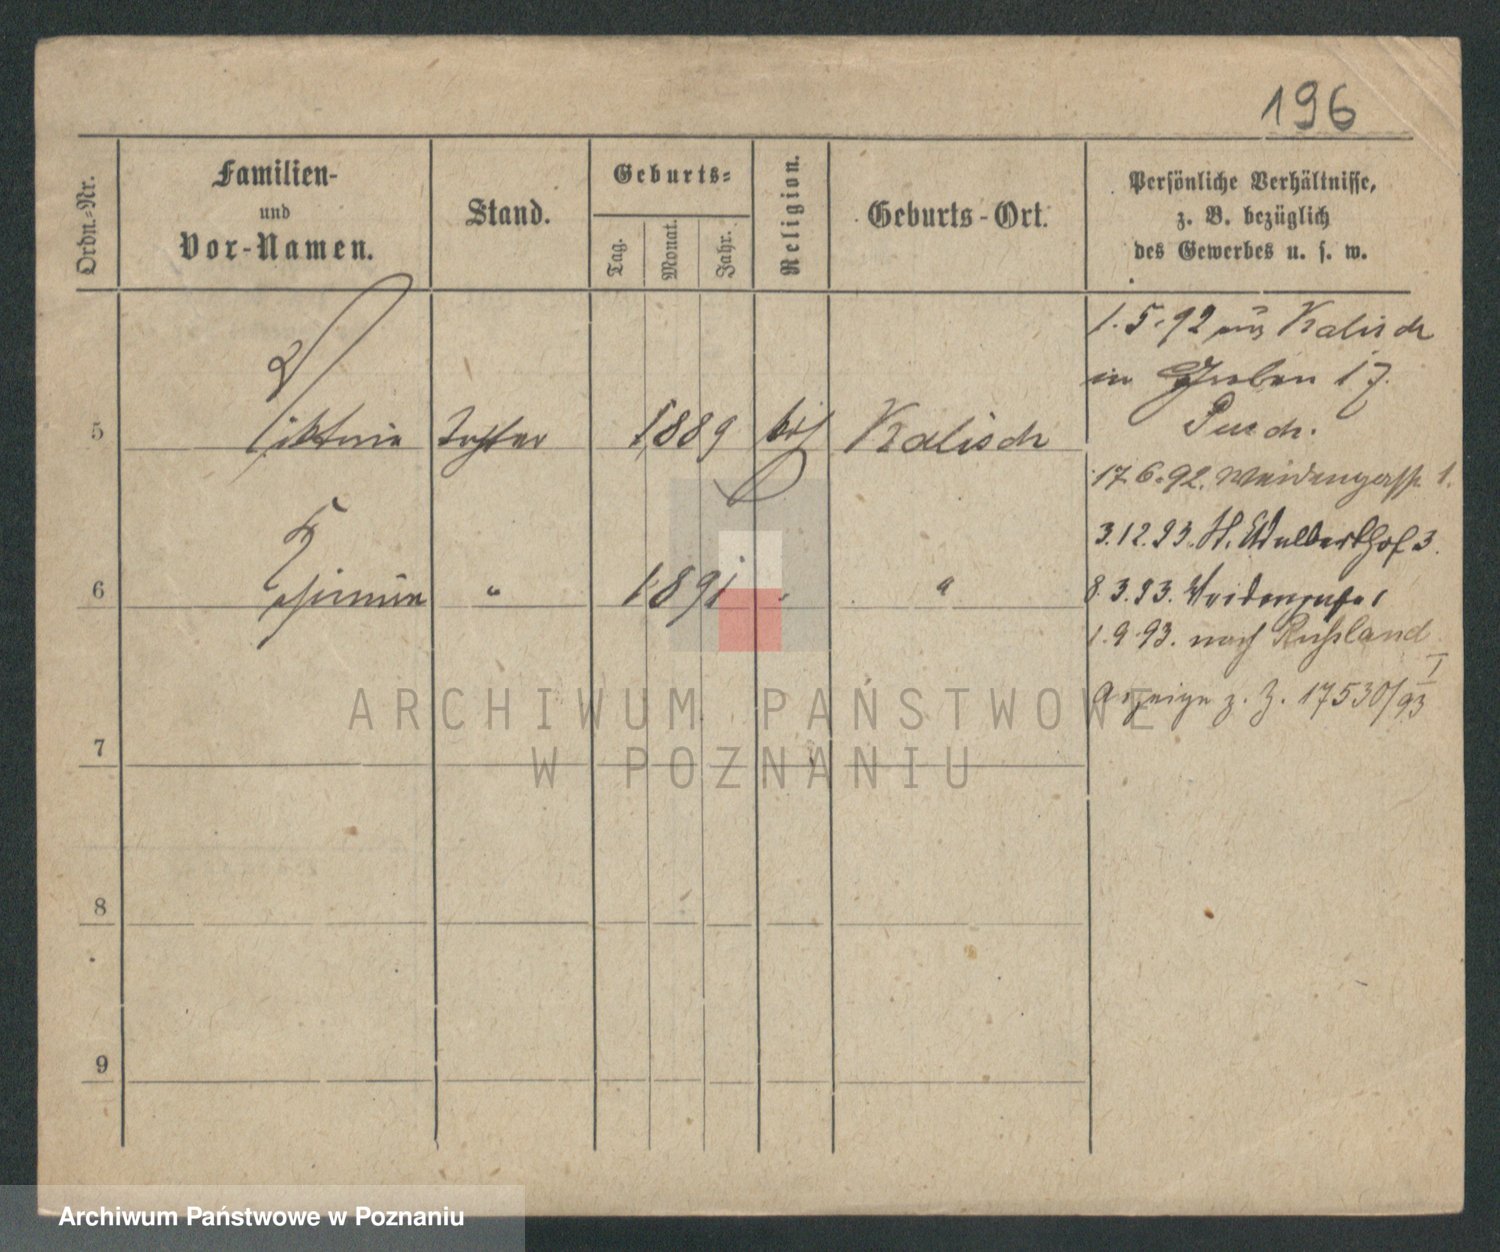 196
Ordn.-Nr.
Familien-
und
Vor-Namen.
Stand.
Geburts-
Tag.
Monat.
Jahr.
Religion.
Geburts-Ort.
Persönliche Verhältnisse,
z. B. bezüglich
des Gewerbes u. s. w.
5 Viktoria Tochter 1889 Kalisch
6 " 1891 " "
7
8
9
1.5.92 aus Kalisch
in Graben 17.
17.6.92. Weidengasse 1.
3.12.93. St. Adalberthof 3.
8.3.93. Weidengasse 1
1.9.93. nach Russland
Anzeige z. Z. 17530/93 I
ARCHIWUM PAŃSTWOWE
W POZNANIU
Archiwum Państwowe w Poznaniu